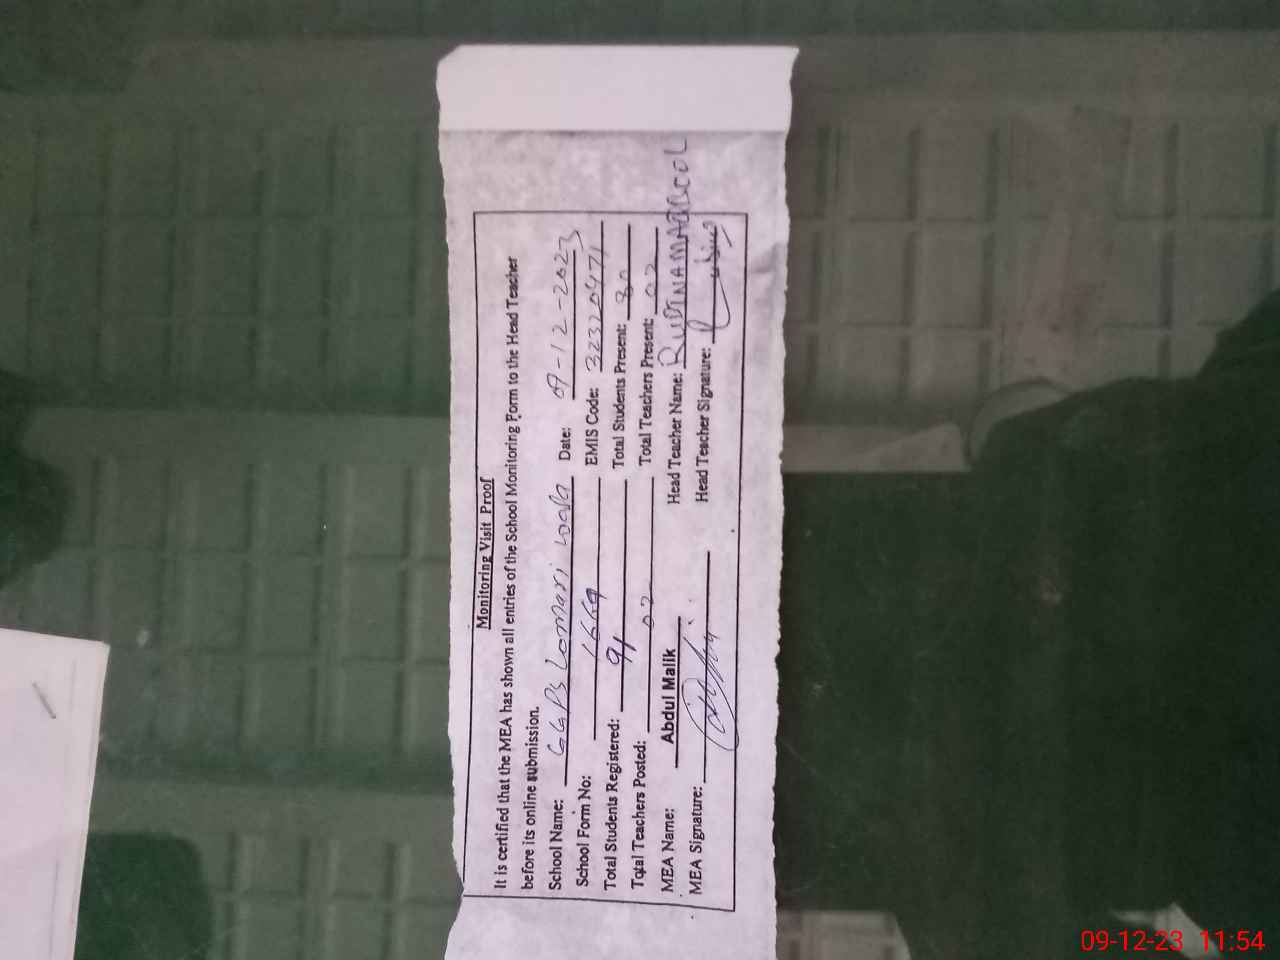 Monitoring Visit Proof
It is certified that the MEA has shown all entries of the School Monitoring Form to the Head Teacher
before its online submission.
School Name: GGPS Lomari wala Date: 09-12-2023
School Form No: 1669 EMIS Code: 32320471
Total Students Registered: 91 Total Students Present: 80
Total Teachers Posted: 02 Total Teachers Present: 02
MEA Name: Abdul Malik Head Teacher Name:
MEA Signature: Head Teacher Signature:
09-12-23 11:54